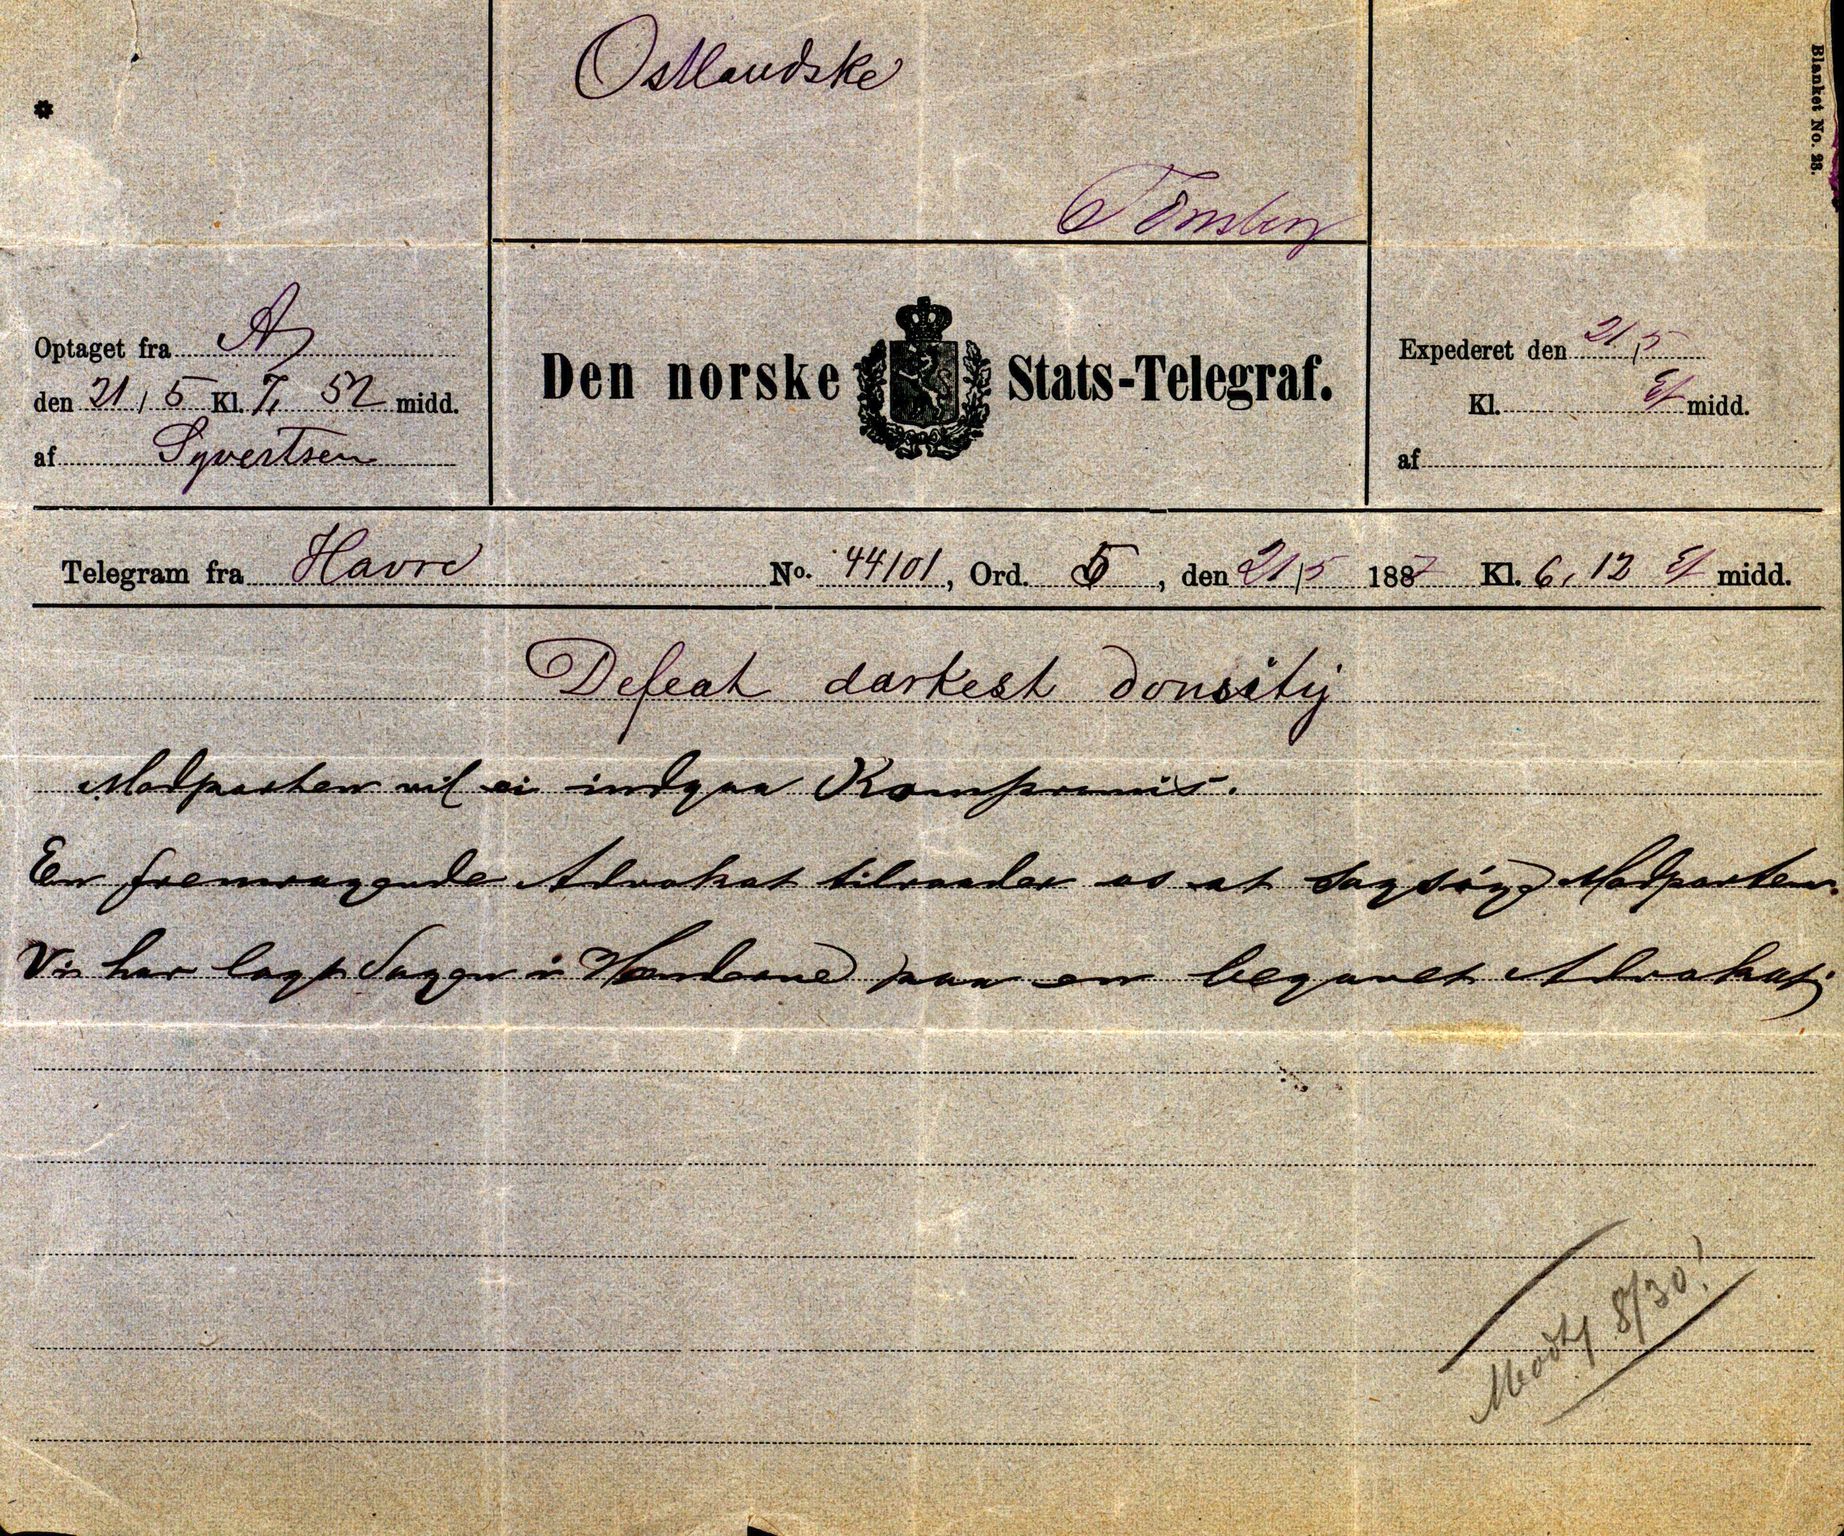 Blanket No. 23.
Ostlandske
Tönsberg
Optaget fra A
den 21/5 Kl. 7, 52 midd.
af Syvertsen
Den norske Stats-Telegraf.
Expederet den 21/5
Kl. Ef midd.
af
Telegram fra Havre No. 44101, Ord. 5, den 21/5 1887 Kl. 6, 12 Ef midd.
Defeat darkest donsity
Modparten vil ei indgaa Kompromis.
En fremragende Advokat tilraader os at sagsøge Modparten.
Vi har lagt Sagen i Hænderne paa en begavet Advokat.
8/30!